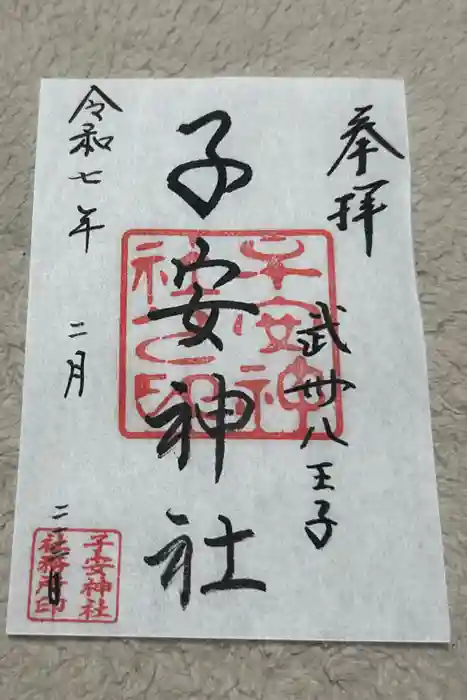 奉拝
武州八王子
子安神社
子安神
社之印
令和七年
二月
子安神社
社務所印